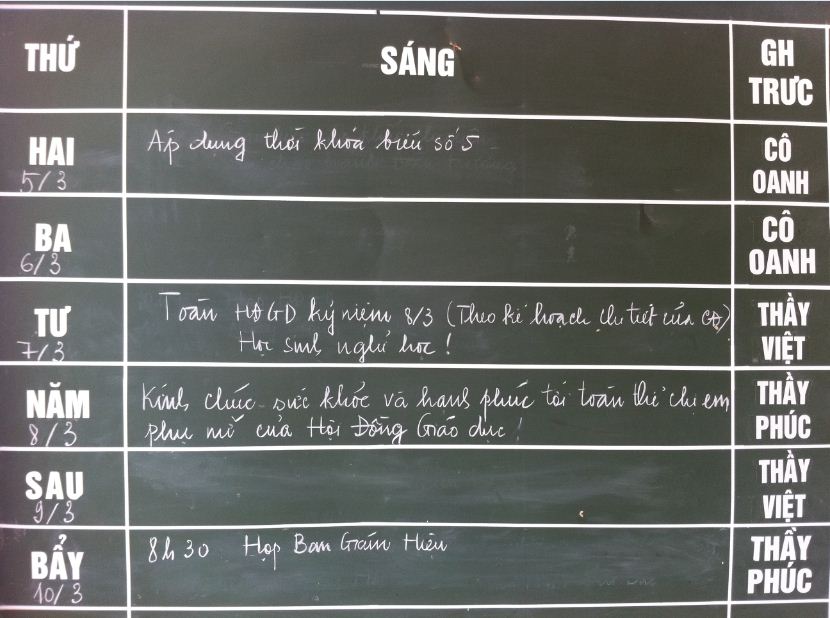 THỨ SÁNG GH
TRƯC
HAI Áp dụng thời khóa biểu số 5 CÔ
5/3 OANH
BA CÔ
6/3 OANH
TƯ Toàn HĐGD kỷ niệm 8/3 (Theo kế hoạch chi tiết của CĐ) THẦY
7/3 Học sinh nghỉ học! VIỆT
NĂM Kính chúc sức khỏe và hạnh phúc tới toàn thể chị em THẦY
8/3 phụ nữ của Hội Đồng Giáo dục! PHÚC
SAU THẦY
9/3 VIỆT
BẨY 8h30 Họp Ban Giám Hiệu THẦY
10/3 PHÚC